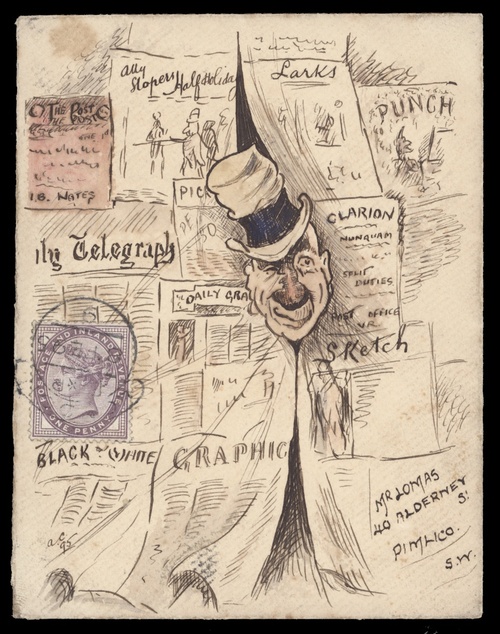 Ally
Slopers Half Holiday
Larks
THE POST
THE POST
I.B. WATES
PUNCH
PIC
CLARION
NUNQUAM
SPLIT
DUTIES
POST OFFICE
V.R.
ily Telegraph
DAILY GRA
Sketch
POSTAGE AND INLAND REVENUE
ONE PENNY
BLACK & WHITE
GRAPHIC
MR LOMAS
40 ALDERNEY
St
PIMLICO.
S.W.